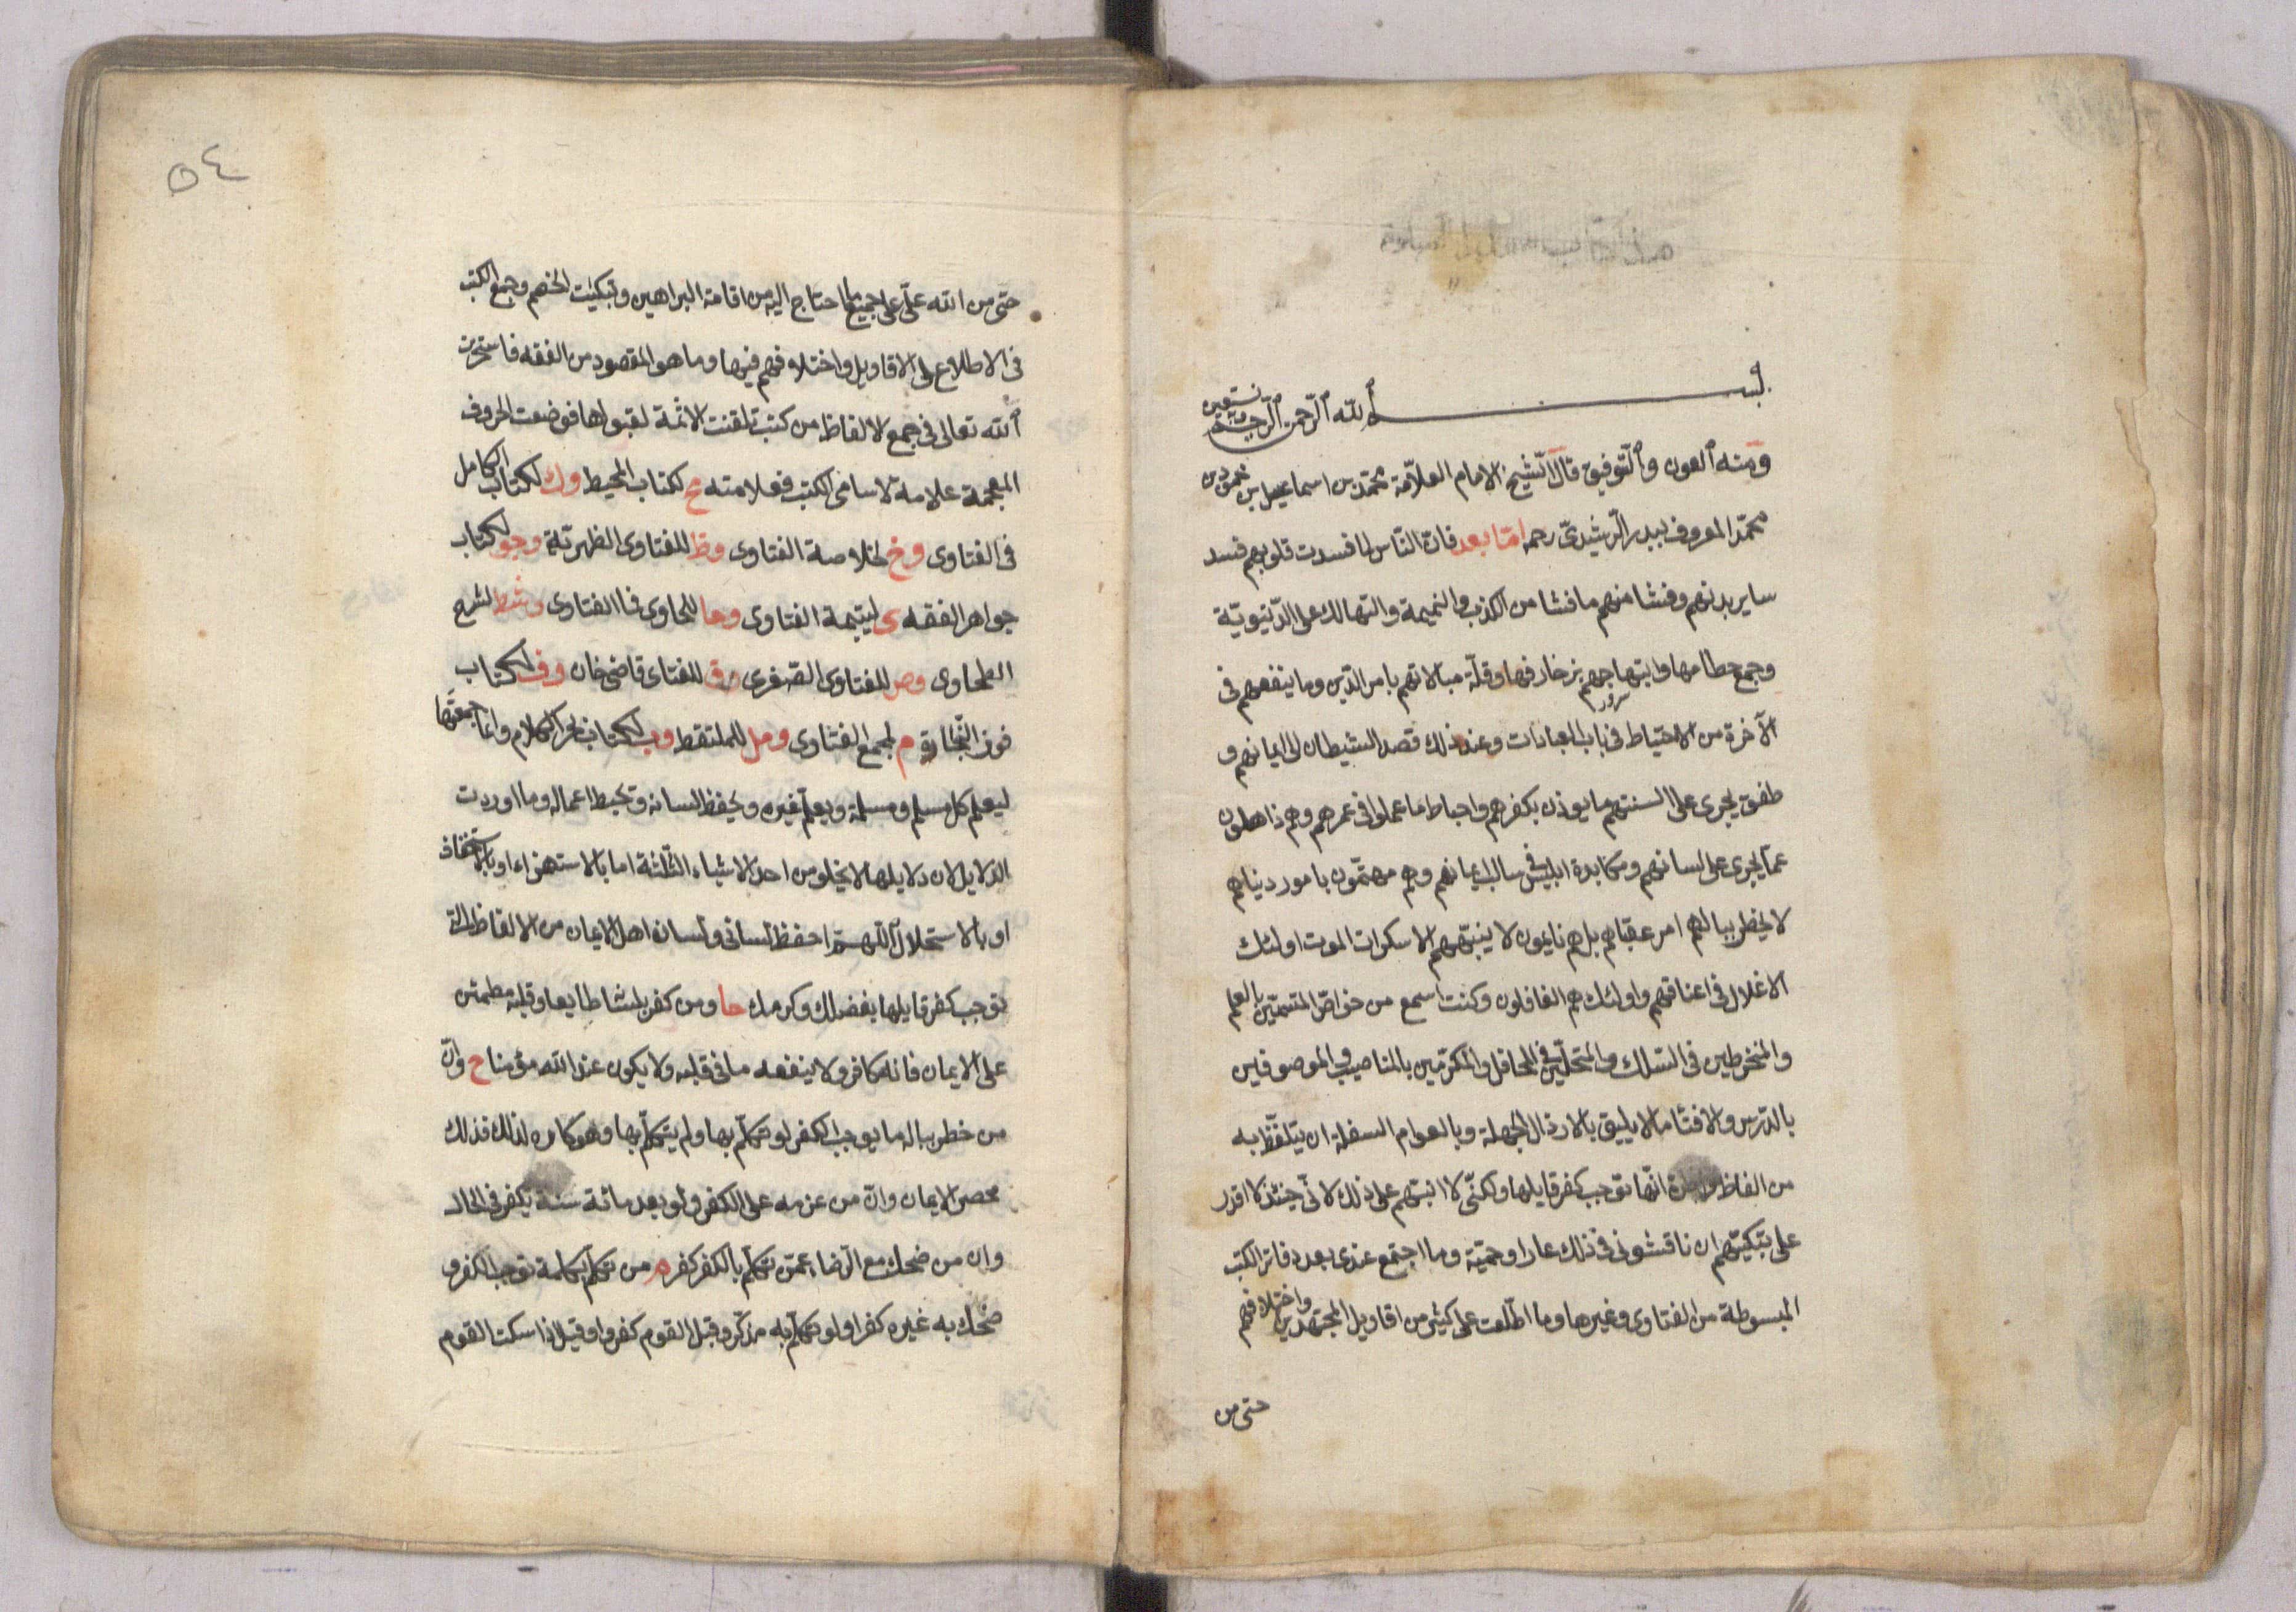 بسم الله الرحمن الرحيم وبه نستعين
ومنه العون والتوفيق قال الشيخ الامام العلامة محمد بن اسماعيل بن محمود بن
محمد المعروف ببدر الرشيدى رحمه اما بعد فان الناس لما فسدت قلوبهم فسد
ساير بدنهم وفشا منهم ما فشا من الكذب والنميمة والتهالك على الدنيوية
وجمع حطامها وابتهاجهم بزخارفها وقلة مبالاتهم بامر الدين وما ينفعهم فى
الآخرة من الاحتياط فى باب العبادات وعند ذلك قصد الشيطان الى ايمانهم و
طفق يجرى على السنتهم ما يوذن بكفرهم واحباط ما عملوا فى عمرهم وهم ذاهلون
عما يجرى على لسانهم ومكايدة ابليس فى سالب ايمانهم وهم مهتمون بامور دنياهم
لا يخطر ببالهم امر عقباهم بل هم نايمون لا ينبههم الا سكرات الموت اولئك
الاغلال فى اعناقهم واولئك هم الغافلون وكنت اسمع من خواص المتسمين بالعلم
والمنخرطين فى السلك والمتحلين فى المحافل والمكرمين بالمناصب والموصوفين
بالدرس والافتا ما لا يليق بالارذال الجهلة وبالعوام السفلة ان يتلفظ به
من الفاظ انها توجب كفر قايلها ولكنى لا انبههم على ذلك لانى حينئذ لا اقدر
على تبكيتهم ان ناقشونى فى ذلك عارا وحمية وما اجتمع عندى بعد دفاتر الكتب
المبسوطة من الفتاوى وغيرها وما اطلعت على كثير من اقاويل المجتهدين واختلافهم
حتى من
٥٤
حتى من الله على على جميع ما احتاج اليه من اقامة البراهين وتبكيت الخصم وجمع الكتب
فى الاطلاع على الاقاويل واختلافهم فيها وما هو المقصود من الفقه فاستخرت
الله تعالى فى جمع الالفاظ من كتب تلقنت الائمة لقبولها فوضعت الحروف
المعجمة علامة لاسامى الكتب فعلامته مح لكتاب المحيط وك لكتاب الكامل
فى الفتاوى وخ لخلاصة الفتاوى وظ للفتاوى الظهرية وجو لكتاب
جواهر الفقه ى ليتيمة الفتاوى وحا للحاوى فى الفتاوى وشط لشرح
الطحاوى وص للفتاوى الصغرى وق للفتاى قاضى خان وف لكتاب
فوز النجاة وم لمجمع الفتاوى ومل للملتقط وب لكتاب بحر الكلام وانما جمعتها
ليعلم كل مسلم ومسلمة ويعلم غيره ويحفظ لسانه وتحيط اعماله وما اوردت
الدلايل لان دلايلها لا يخلو من احد الاشياء الثلثة اما بالاستهزاء او بالاستخفاف
او بالاستحلال اللهم احفظ لسانى ولسان اهل الايمان من الالفاظ التى
توجب كفر قايلها بفضلك وكرمك حا ومن كفر بلسانه طايعا وقلبه مطمئن
على الايمان فانه كافر ولا ينفعه ما فى قلبه ولا يكون عند الله مؤمنا ح وان
من خطر بباله ما يوجب الكفر لو تكلم بها ولم يتكلم بها وهو كاره لذلك فذلك
محض الايمان وان من عزمه على الكفر ولو بعد مائة سنة يكفر فى الحال
وان من ضحك مع الرضاء عمن تكلم بالكفر كفر م من تكلم بكلمة توجب الكفر و
ضحك به غيره كفرا ولو تكلم به مذكر وقبل القوم كفروا وقيل اذا سكت القوم